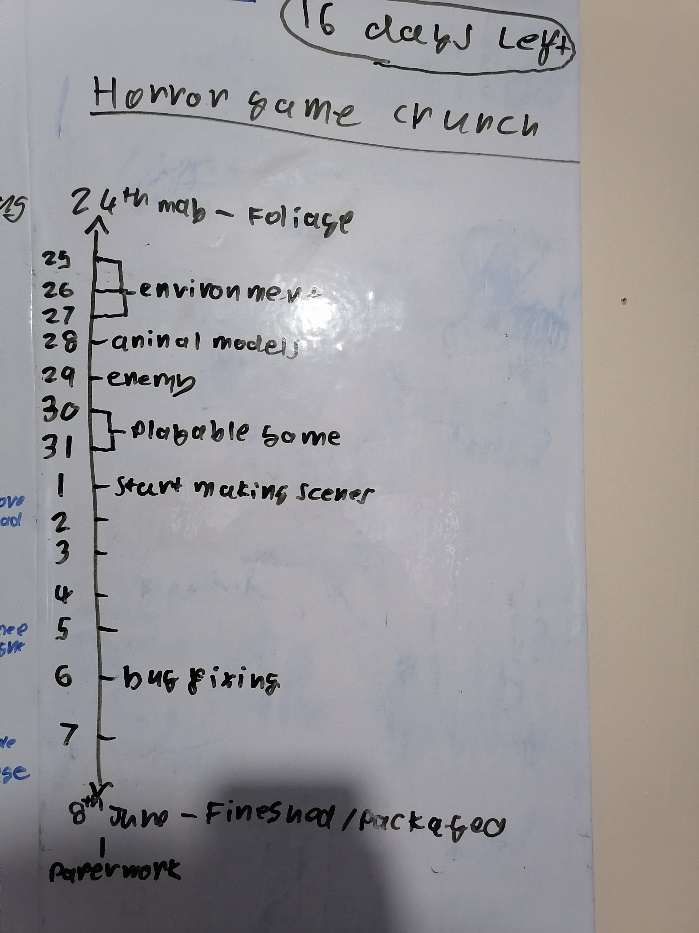 16 days Left
Horror game crunch
24th may - Foliage
25
26
27
environment
28 - animal models
29 - enemy
30
31
playable game
1 - start making scenes
2
3
4
5
6 - bug fixing
7
8th June - Fineshed/Packaged
Paperwork